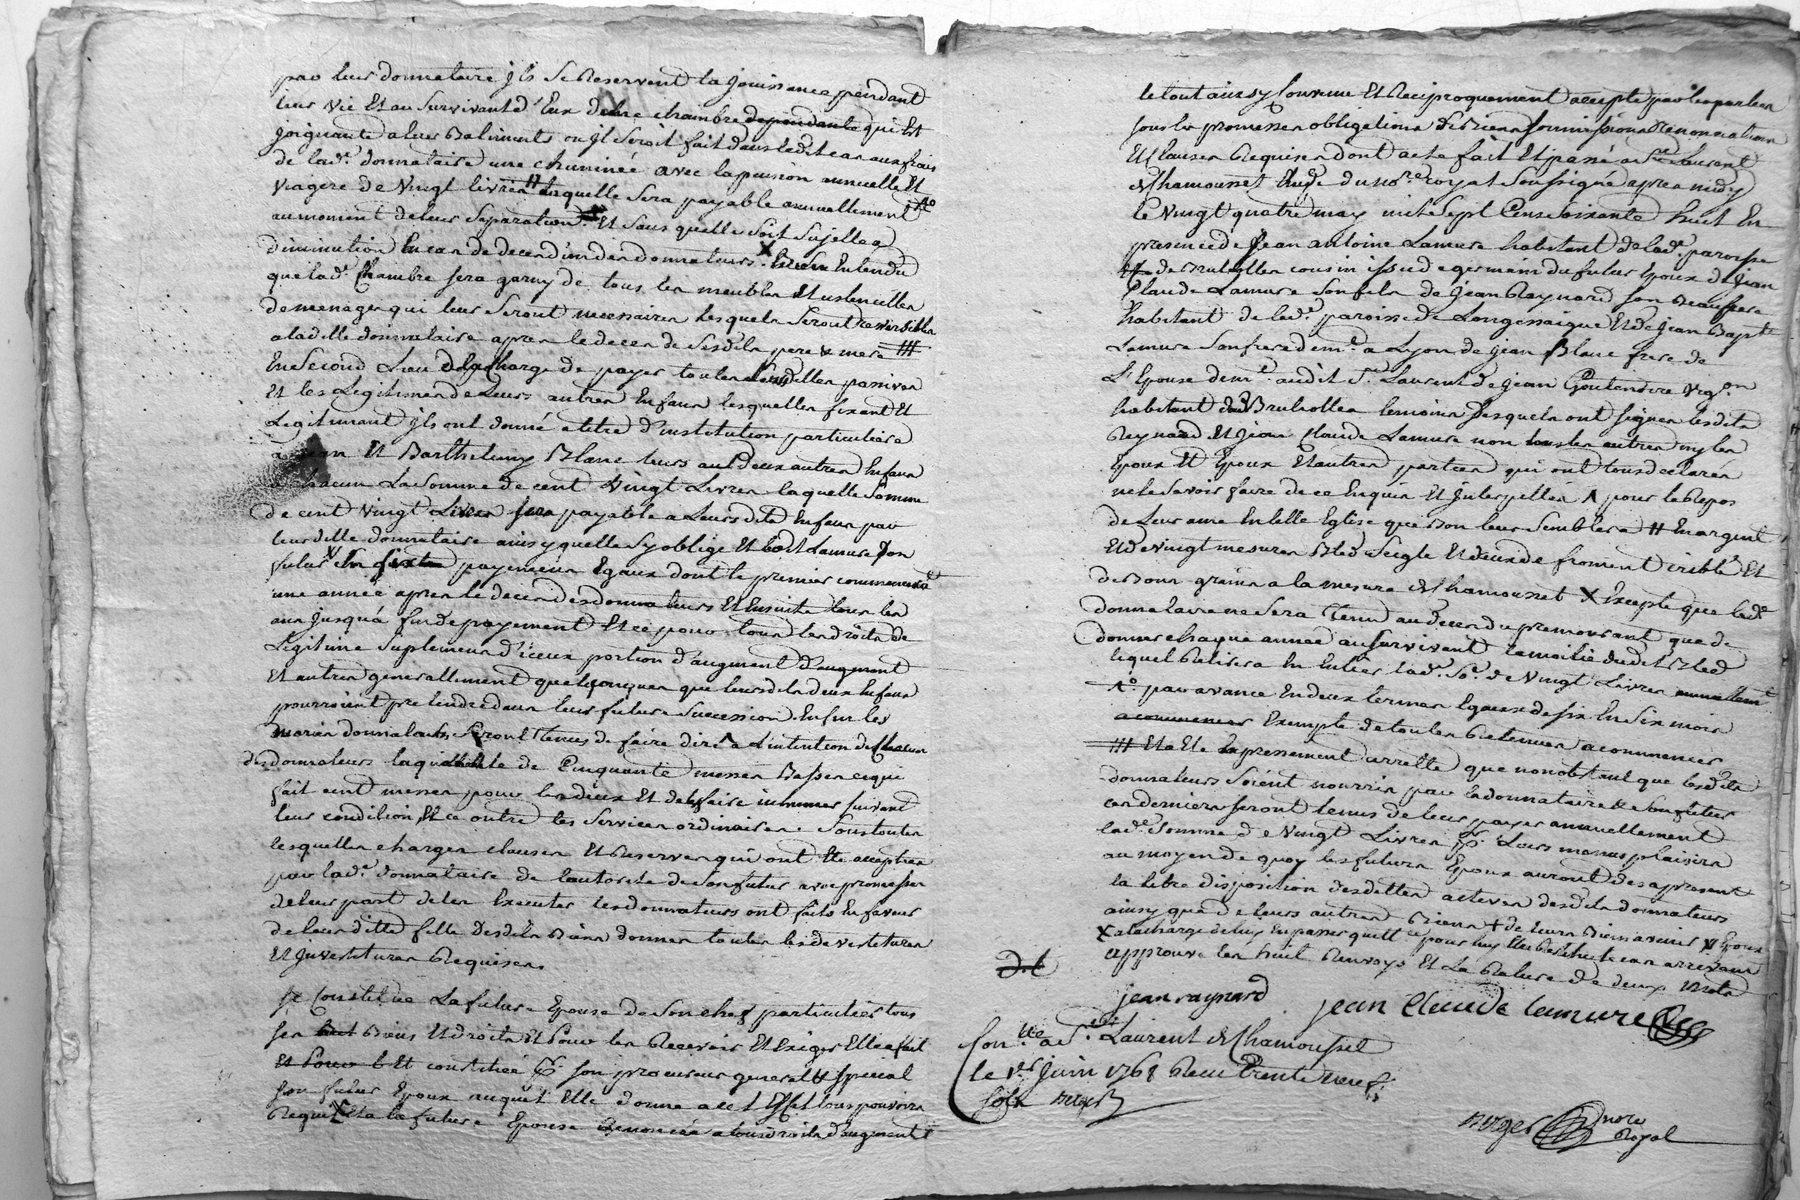 par leur donnataire ils se Reservent la jouissance pendant
leur vie Et au survivant d'Eux d'une chambre dependante qui Est
joignante a leur Batiments ou il seroit fait dans ledit cas aux frais
de lad.e donnataire une cheminée avec la pension annuelle Et
viagere de vingt livres # laquelle sera payable annuellement
au moment de leur separation Et sans quelle soit sujette a
diminution En cas de deces d'un des donnateurs Bien Entendu
que lad.e Chambre sera garny de tous les meubles Et ustencilles
de menages qui leur seront necessaires lesquels seront reversibles
a ladille donnataire apres le deces de sesdits pere & mere #
En second Lieu a la Charge de payer toutes leurs dettes passives
Et les Legitimes de Leurs autres Enfans lesquelles fixant Et
Legitimant ils ont donné a titre d'institution particuliere
a Jean Et Barthelemy Blanc leurs deux autres Enfans
a chacun La somme de cent vingt Livres laquelle somme
de cent vingt Livres sera payable a Leursdits Enfans par
leurditte donnataire ainsy quelle sy oblige Et ledit Lamure son
futur En payemens Egaux dont le premier commencera
une année apres le deces des donnateurs Et Ensuite tous les
ans jusqu'a fin de payement Et ce pour tous les droits de
Legitime suplement d'iceux portion d'augment d'augment
Et autres generallement quelconques que leursdits deux Enfans
pourroient pretendre dans leur future succession Enfin les
mariés donnataires seront tenus de faire dire a L'intention de Chacun
des donnateurs la quantité de Cinquante messes Basses ce qui
fait cent messes pour les deux Et de les faire inhumer suivant
leur condition Et ce outre les services ordinaires sous toutes
lesquelles charges clauses Et Reserves qui ont Eté acceptées
par lad.e donnataire de l'autorité de son futur avec promesses
de leur part de les Executer les donnateurs ont faits En faveur
de leur ditte fille desdits Biens donnés toutes les devestitures
Et investitures Requises.
se Constitue La future Epouse de son chef particulier tous
ses Biens Et droits Et Pour les Recevoir Et Exiger Elle a fait
Et constitué pr. son procureur general & special
son futur Epoux auquel Elle donne a cet Effet tous pouvoirs
Requis Et a la future Epouse Renoncée a tous droits d'augment
le tout ainsy convenu Et Reciproquement accepté par les parties
sous les promesses obligations de Biens soumissions Renonciations
Et Clauses Requises dont acte fait Et passé a St Laurent
de Chamousset Etude du no.re royal soussigné apres midy
le vingt quatre may mil sept Cens soixante huit En
presence de Jean Antoine Lamure habitant de lad.e paroisse
de Brulliolles cousin issu de germain du futur Epoux de Jean
Claude Lamure son fils de Jean Raynard son Beaufrere
habitant de lad.e paroisse de Longessaigne Et de Jean Bapt.
Lamure son frere dem.t a Lyon de Jean Blanc frere de
L'Epouse dem.t audit St. Laurent de Jean Goutendire Vig.on
habitant dud. Brulliolles temoins desquels ont signes lesdits
Reynard Et Jean Claude Lamure non tous les autres ny les
Epoux Et Epouse Et autres parties qui ont tous declarés
ne le savoir faire de ce Enquis Et interpellés A pour le Repos
de Leur ame En telle Eglise que Bon leur semblera # En argent
Et de vingt mesures Bled seigle Et deux de froment criblé Et
de Bon grain a la mesure de Chamousset X Excepté que lad.e
donnataire ne sera tenue au deces du premourant que de
donner chaque année au survivant la moitié dudit Bled
lequel Retirera En Entier lad.e so.e de vingt Livres annuellement
par avance En deux termes Egaux de six En six mois
a commencer Exempte de toutes Retenues a commencer
# Et a Eté Expressement arretté que nonobstant que lesdits
donnateurs soient nourris par la donnataire & son futur
ces derniers seront tenus de leur payer annuellement
lad.e somme de vingt Livres pr. Leurs menus plaisirs
au moyen de quoy les futurs Epoux auront des apresent
la libre disposition des dettes actives desdits donnateurs
ainsy que de leurs autres Biens + de leurs Biens a venir
X a la charge de luy En passer quitt.ce pour luy Etre Restitué le cas arrivant
approuvé les huit Renvoys Et La Rature de deux mots
jean raynard
jean Claude lamure
Con.lle a St. Laurent de Chamousset
le 1.er juin 1768 Recu trente neuf s.
Solz
no.re
Royal